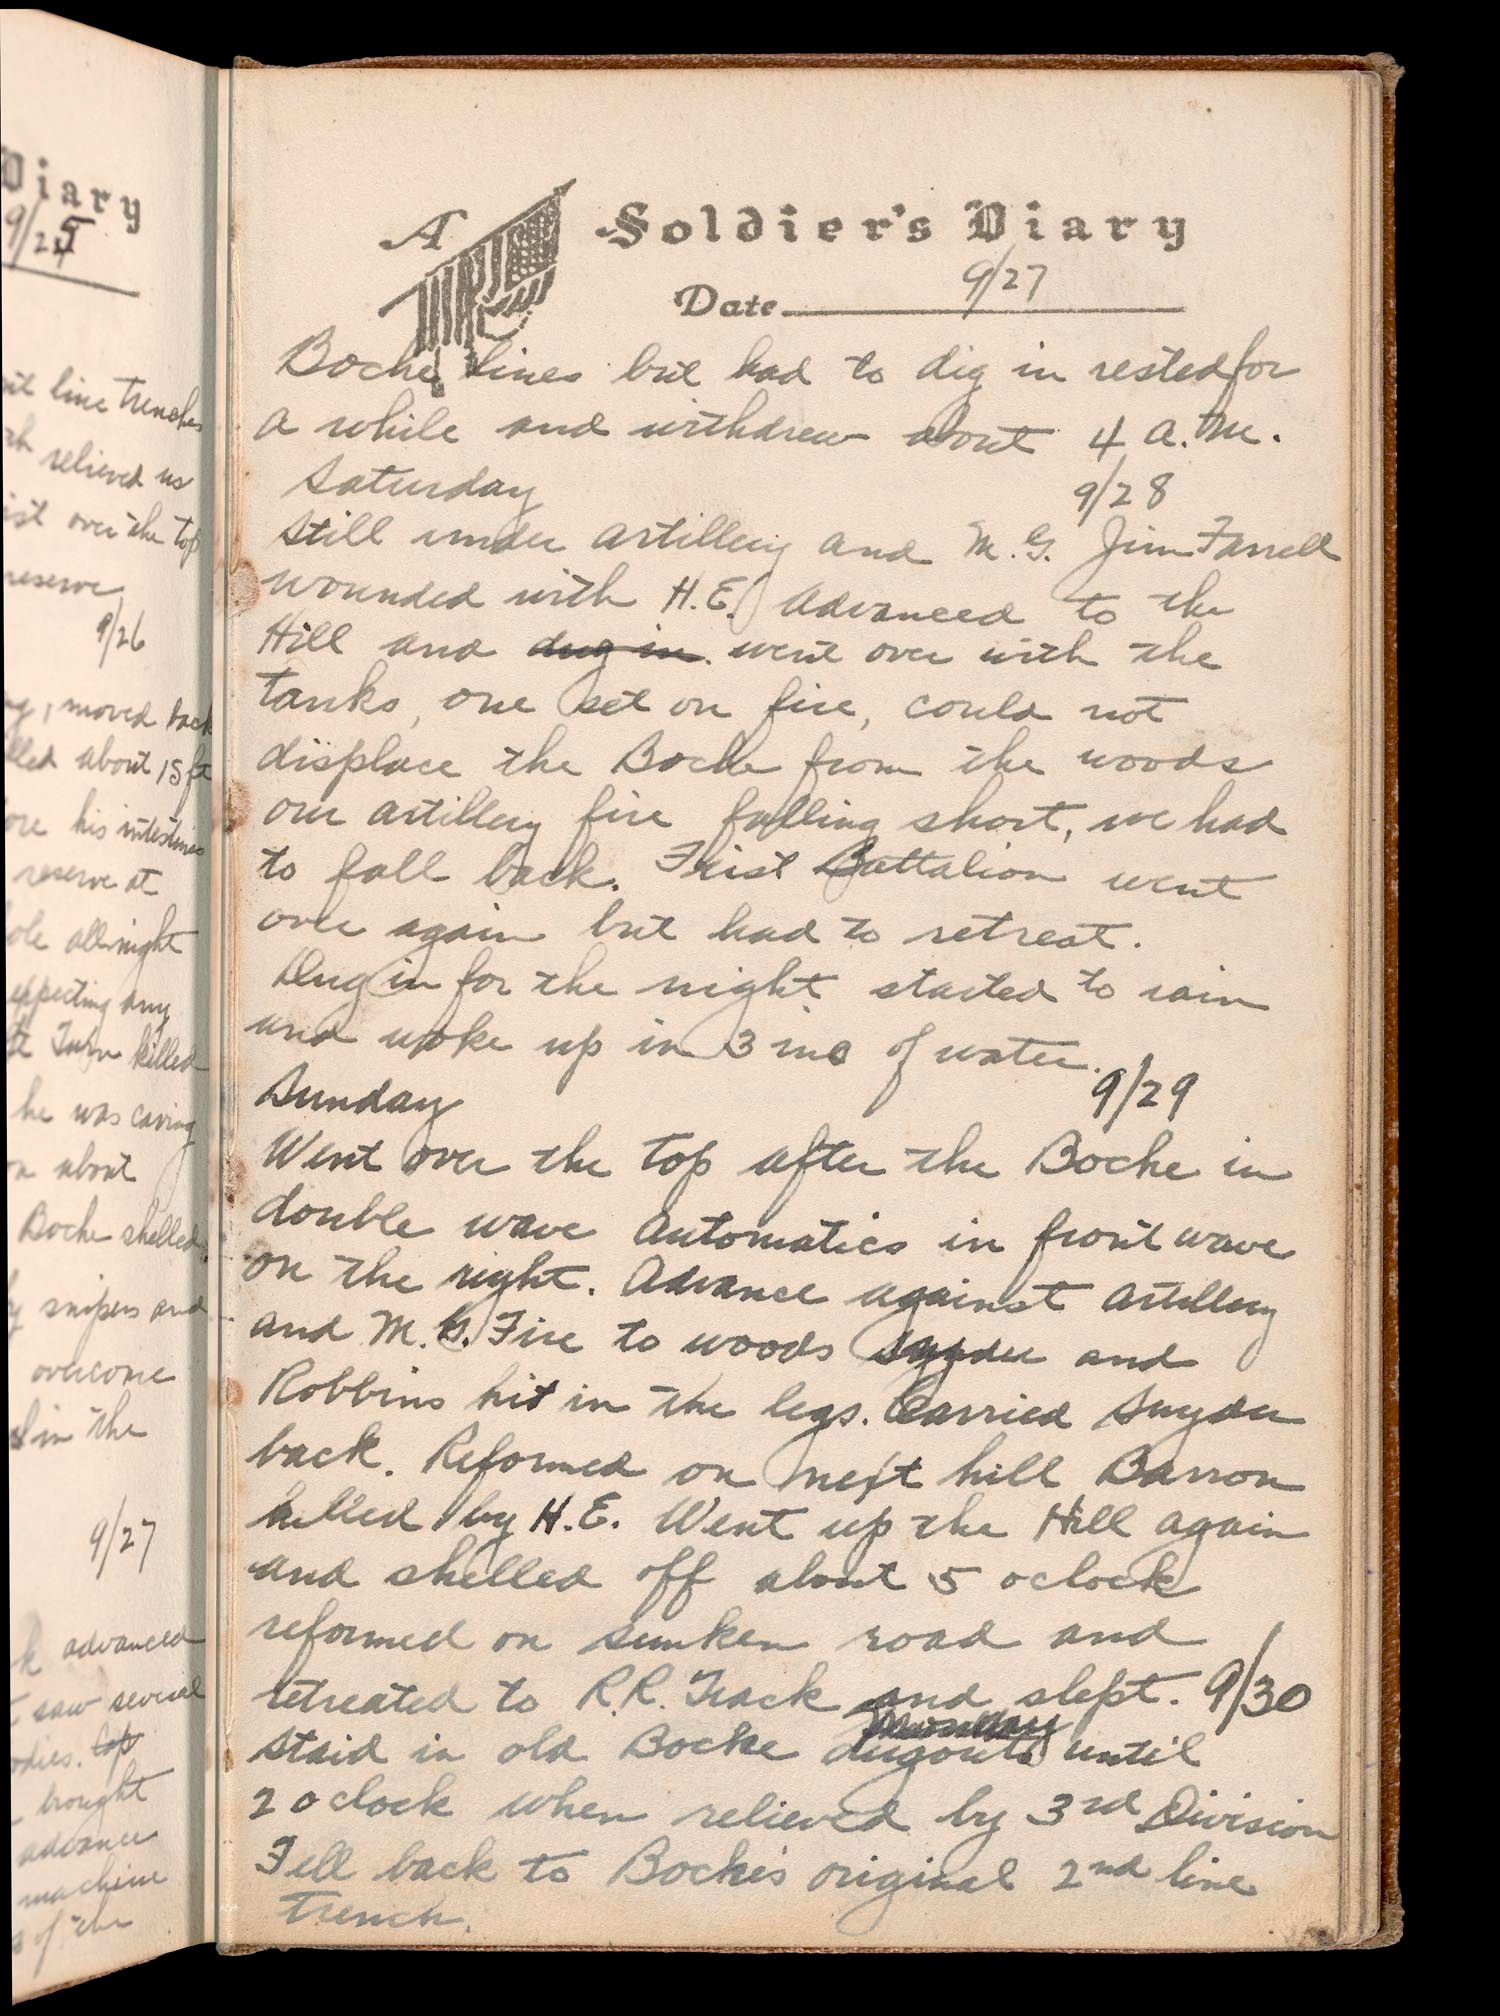 Diary
9/25
line trenches
relieved us
over the top
reserve
9/26
moved back
about 15 ft
his intestines
reserve at
all night
any
killed
he was caving
about
Boche shelled
snipers and
overcome
in the
9/27
advanced
saw several
brought
advance
machine
of the
A Soldier's Diary
Date 9/27
Boche lines but had to dig in rested for
a while and withdrew about 4 a.m.
Saturday 9/28
Still under artillery and M.G. Jim Farrell
wounded with H.E. Advanced to the
Hill and dug in. went over with the
tanks, one set on fire, could not
displace the Boche from the woods
our artillery fire falling short, we had
to fall back. First Battalion went
over again but had to retreat.
Dug in for the night started to rain
and woke up in 3 ins of water.
Sunday 9/29
Went over the top after the Boche in
double wave Automatics in front wave
on the right. Advance against Artillery
and M.G. Fire to woods Snyder and
Robbins hit in the legs. Carried Snyder
back. Reformed on next hill Barron
killed by H.E. Went up the Hill again
and shelled off about 5 oclock
reformed on sunken road and
retreated to R.R. Track and slept. 9/30
Staid in old Boche dugouts until
2 oclock when relieved by 3rd Division
Fell back to Boche's original 2nd line
Trench.